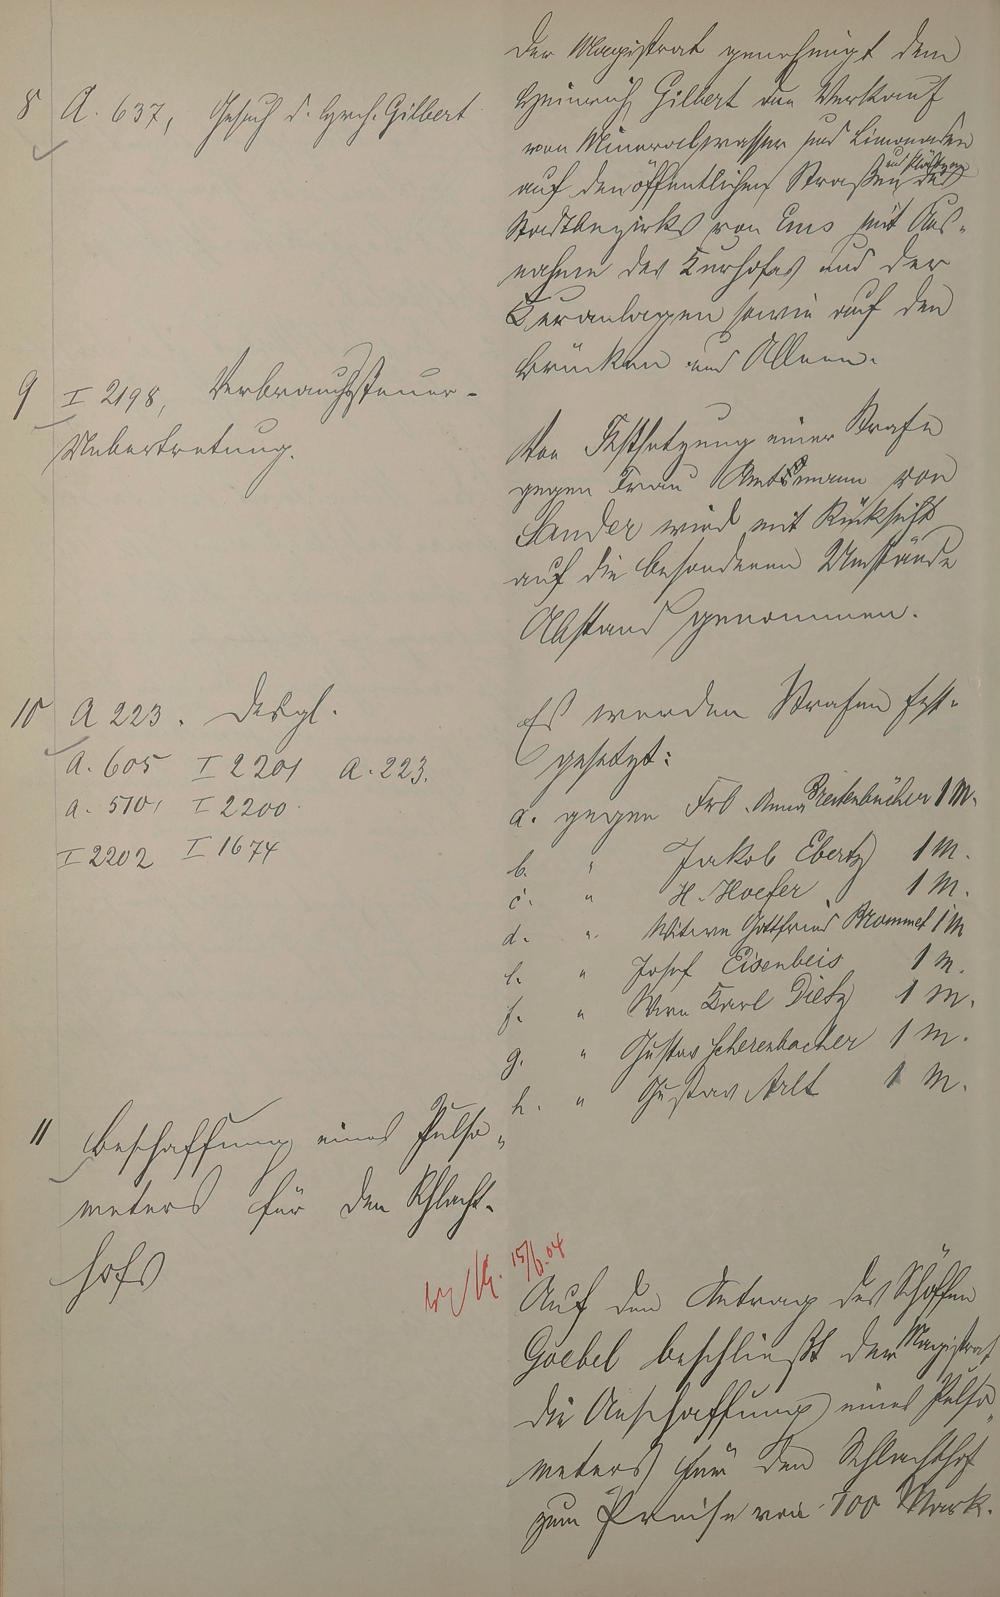 8 A. 637, Gesuch d. Hrch. Gilbert
Der Magistrat genehmigt dem
Heinrich Gilbert den Verkauf
von Mineralwasser und Limonaden
auf den öffentlichen Straßen und Plätzen des
Stadtbezirks von Ems mit Aus-
nahme des Kurhofes und der
Kuranlagen sowie auf den
Brücken und Alleen.
9 I 2198, Verbrauchssteuer-
Uebertretung.
Von Festsetzung einer Strafe
gegen Frau Amtsmann von
Sander wird mit Rücksicht
auf die besonderen Umstände
Abstand genommen.
10 A 223. Desgl.
A. 605 I 2201 A. 223.
A. 510, I 2200
I 2202 I 1674
Es werden Strafen fest-
gesetzt:
a. gegen Frl. Anna Breitenbücher 1 M.
b. " Jakob Ebertz 1 M.
c. " H. Hoefer 1 M.
d. " Witwe Gottfried Brommel 1 M
e. " Josef Eisenbeis 1 M.
f. " Wwe Karl Dietz 1 M.
g. " Gustav Scherenbacher 1 M.
h. " Gustav Arlt 1 M.
11 Beschaffung eines Pulso-
meters für den Schlacht-
hofs
15/6.04
Auf den Antrag des Schöffen
Goebel beschließt der Magistrat
die Anschaffung eines Pulso-
meters für den Schlachthof
zum Preise von 700 Mark.